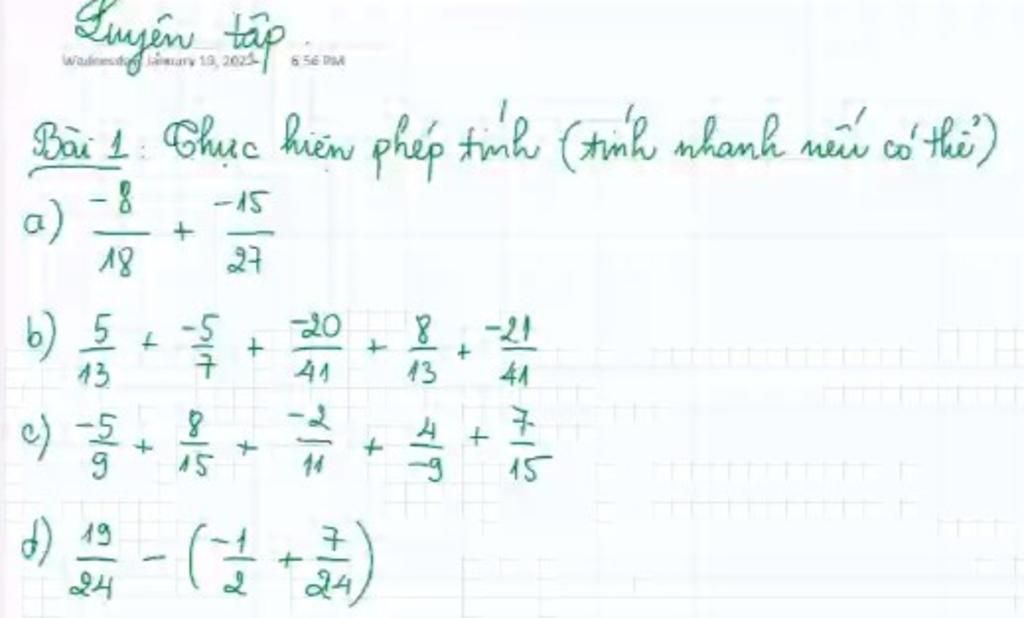 Luyện tập.
Wednesday, January 19, 2022 6:56 PM
Bài 1: Thực hiện phép tính (tính nhanh nếu có thể)
a) -8/18 + -15/27
b) 5/13 + -5/7 + -20/41 + 8/13 + -21/41
c) -5/9 + 8/15 + -2/11 + 4/-9 + 7/15
d) 19/24 - (-1/2 + 7/24)